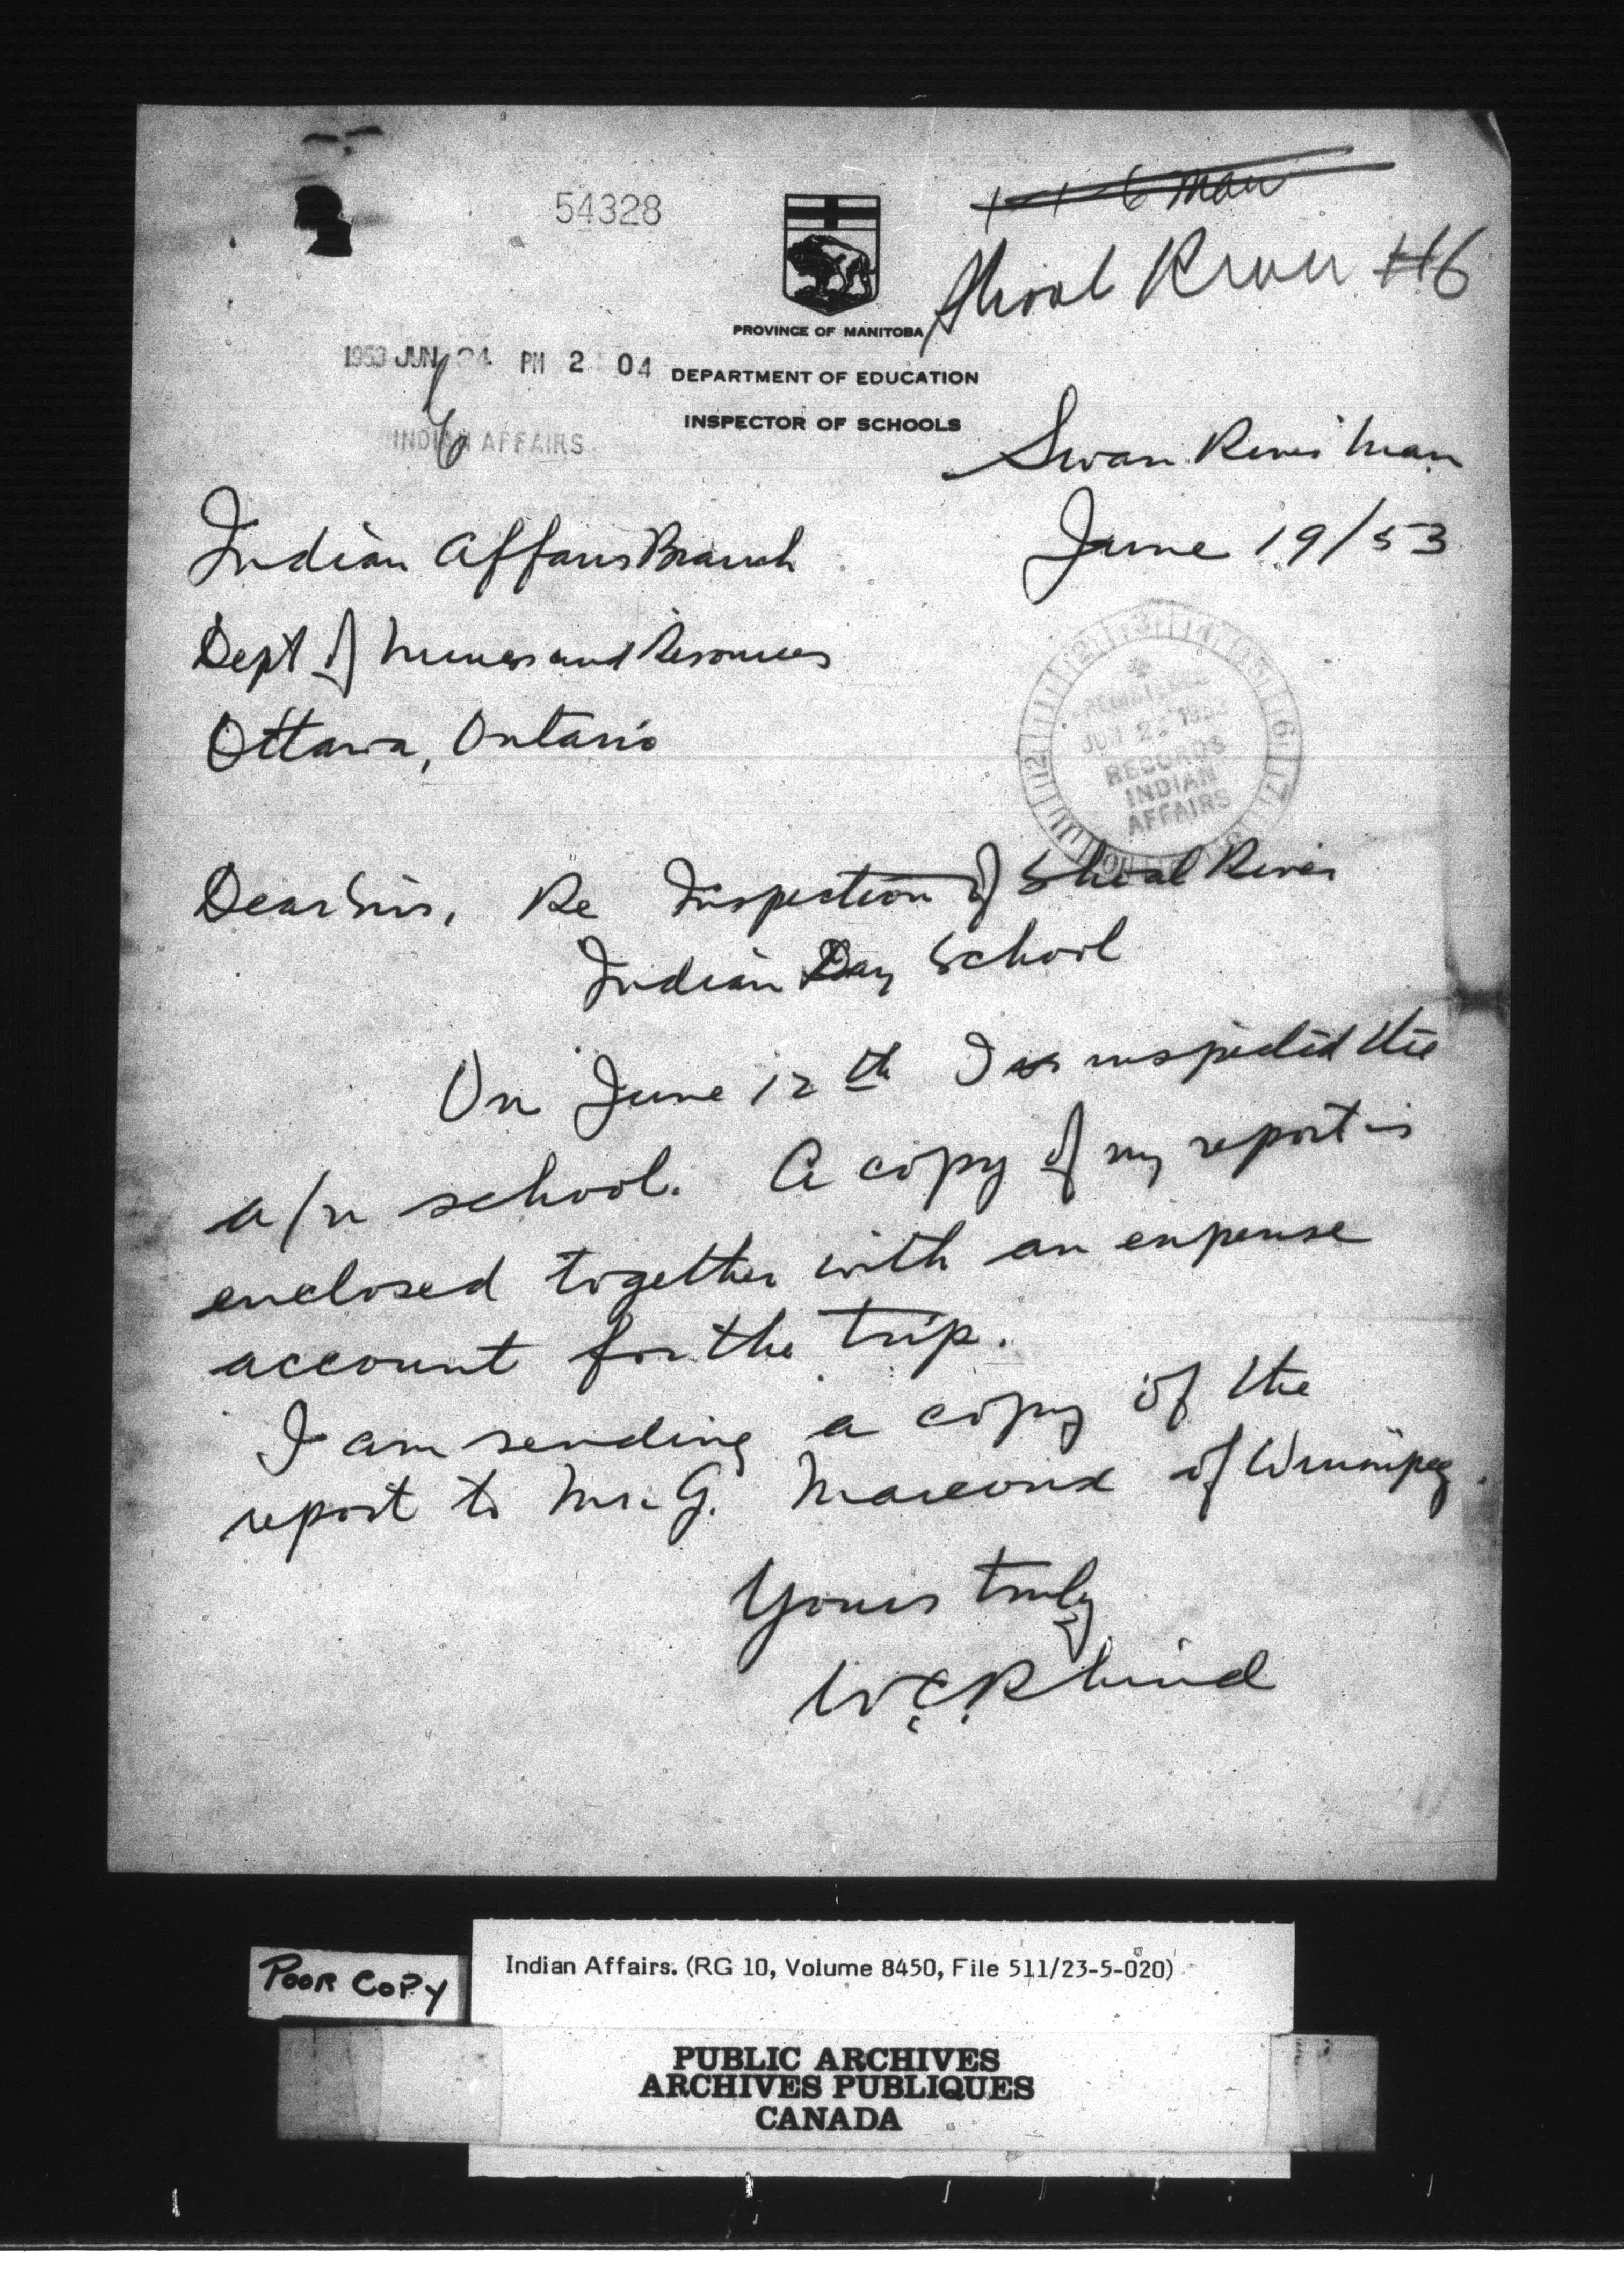 54328
1-1-6 Man
Shoal River #6
PROVINCE OF MANITOBA
1953 JUN 24 PM 2 04
DEPARTMENT OF EDUCATION
INDIAN AFFAIRS
INSPECTOR OF SCHOOLS
Swan River Man
June 19/53
Indian Affairs Branch
Dept of Mines and Resources
Ottawa, Ontario
JUN 1953
RECORDS
INDIAN
AFFAIRS
Dear Sirs, Re Inspection of Shoal River
Indian Day School
On June 12th I inspected the
a/n school. A copy of my report is
enclosed together with an expense
account for the trip.
I am sending a copy of the
report to Mr. G. Marcoux of Winnipeg.
Yours truly
W.C. Rhind
POOR COPY
Indian Affairs. (RG 10, Volume 8450, File 511/23-5-020)
PUBLIC ARCHIVES
ARCHIVES PUBLIQUES
CANADA